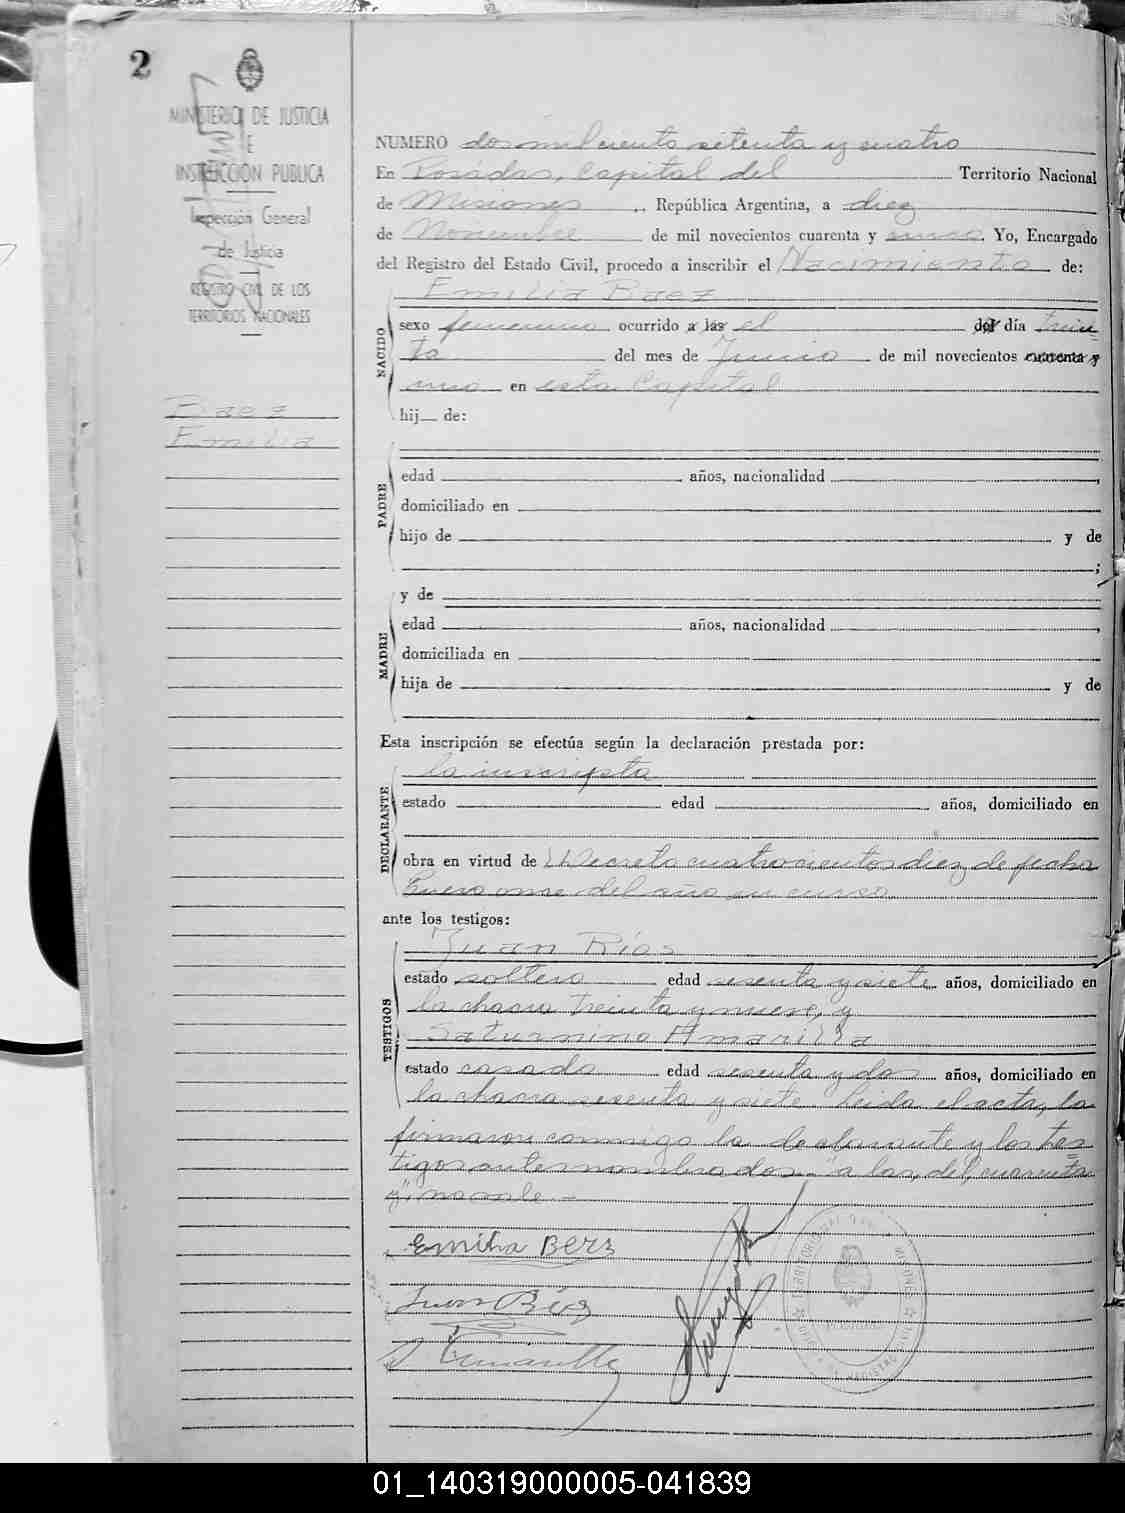 2
MINISTERIO DE JUSTICIA
E
INSTRUCCIÓN PUBLICA
Inspección General
de Justicia
REGISTRO CIVIL DE LOS
TERRITORIOS NACIONALES
Baez
Emilia
NUMERO dos mil ciento setenta y cuatro
En Posadas, Capital del Territorio Nacional
de Misiones, República Argentina, a diez
de Noviembre de mil novecientos cuarenta y cinco. Yo, Encargado
del Registro del Estado Civil, procedo a inscribir el Nacimiento de:
Emilia Baez
NACIDO
sexo femenino ocurrido a las el del día trein
ta del mes de Junio de mil novecientos cuarenta y
uno en esta Capital
hij de:
PADRE
edad años, nacionalidad ,
domiciliado en
hijo de y de
;
MADRE
y de
edad años, nacionalidad ,
domiciliada en
hija de y de
Esta inscripción se efectúa según la declaración prestada por:
DECLARANTE
la inscripta
estado edad años, domiciliado en
obra en virtud de Decreto cuatrocientos diez de fecha
Enero once del año en curso
ante los testigos:
TESTIGOS
Juan Ríos
estado soltero edad sesenta y siete años, domiciliado en
la chacra treinta y nueve, y
Saturnino Amarilla
estado casado edad sesenta y dos años, domiciliado en
la chacra sesenta y siete Leida el acta, la
firmaron conmigo la declarante y los tes
tigos antes nombrados - "a las, del, cuarenta
y", no vale. -
Emilia Baez
Juan Ríos
S Amarilla
MISIONES
01_140319000005-041839